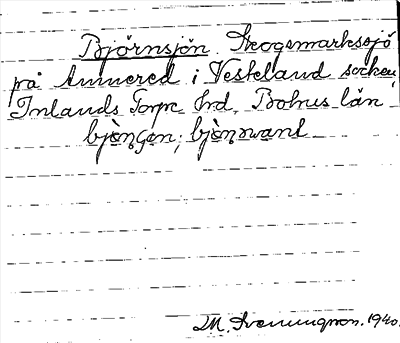 Björnsjön. Skogsmarkssjö
på Annered i Västerland socken,
Inlands Torpe hrd, Bohus län
M. Svenungsson. 1940.